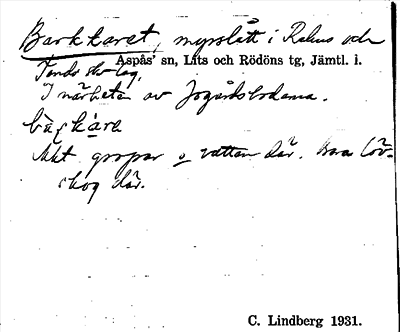 Barkkaret, myrslått i Rekus och
Tands skog,
Aspås' sn, Lits och Rödöns tg, Jämtl. i.
I närheten av Jogårdsbodarna.
Mkt gropar o vatten där. Bara löv-
skog där.
C. Lindberg 1931.